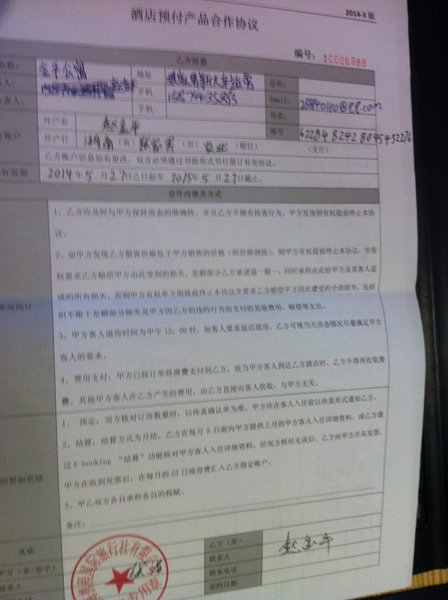 酒店预付产品合作协议
2014-3 版
编号：10006988
乙方信息
金平公寓
地址
总机：
手机
Email：
手机 15874435893
传真：
开户名 赵金平
账号
开户行 湖南（省）张家界（市）农业（银行）
（支行）
乙方账户信息如有更改，双方必须通过书面形式另行签订补充协议。
2014年5月27日起至2015年5月27日截止。
合作内容及方式
1、乙方应及时与甲方保持房态的准确性，并且乙方不能有拖客行为，甲方发现则有权提前终止本协
议。
2、如甲方发现乙方散客价格低于甲方销售的价格（即价格倒挂），则甲方有权提前终止本协议，并有
权要求乙方赔偿甲方由此受到的损失，差额部分乙方承诺退一赔一，同时承担由此给甲方及其客人造
成的所有损失；否则甲方有权单方面提前终止本协议并要求乙方赔偿甲方因此遭受的全部损失，包括
但不限于差额部分损失及甲方因乙方的违约行为而支付的其他费用、赔偿等支出。
3、甲方客人退房时间为中午12：00时，如客人要求延迟退房，乙方可视当天房态情况尽量满足甲方
客人的要求。
4、费用支付：甲方已按订单将房费支付到乙方，故当甲方客人到达乙方酒店时，乙方不得再收取房
费，其他甲方客人在乙方产生的费用，由乙方直接向客人收取，与甲方无关。
1、预定：双方核对订房数量时，以传真确认单为准，甲方应在客人入住前以传真形式通知乙方。
2、结算：结算方式为月结，乙方在每月5日前向甲方提供上月的甲方客人入住详细资料，或乙方通
过E-booking “结算”功能核对甲方客人入住详细资料，经双方核对无误后，乙方向甲方开具发票，
甲方在收到发票后，在每月的25日将房费汇入乙方指定账户。
结算和奖励
3、甲乙双方各自承担各自的税赋。
备注：
其他
甲方（章/签字）
乙方（章）
赵金平
联系人
联系人
联系电话
签约日期